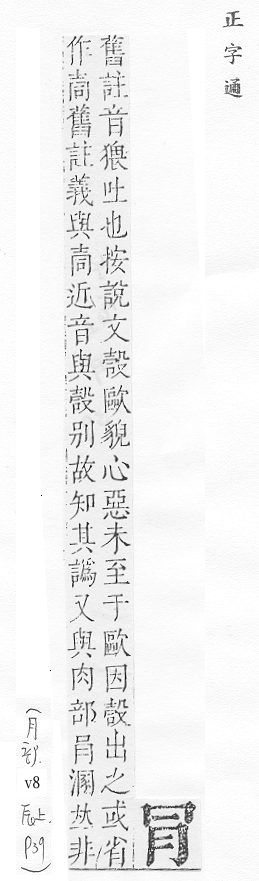 正字通
舊註音猥吐也按說文嗀歐貌心惡未至于歐因嗀出之或省
作舊註義與近音與嗀別故知其譌又與肉部溷𠀤非
(月部.
v8
上.
P39)